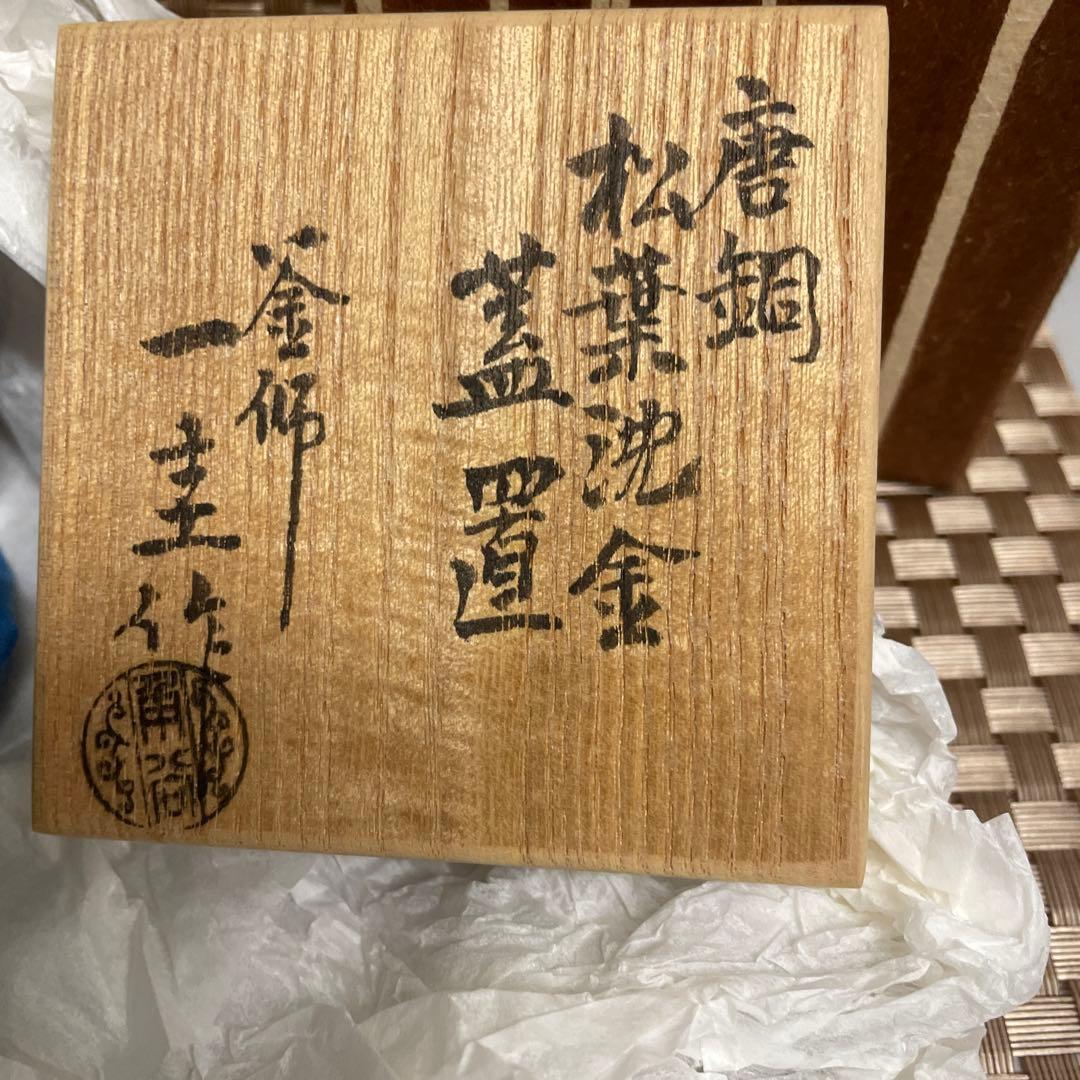 唐銅
松葉沈金
蓋置
釜師
一圭作